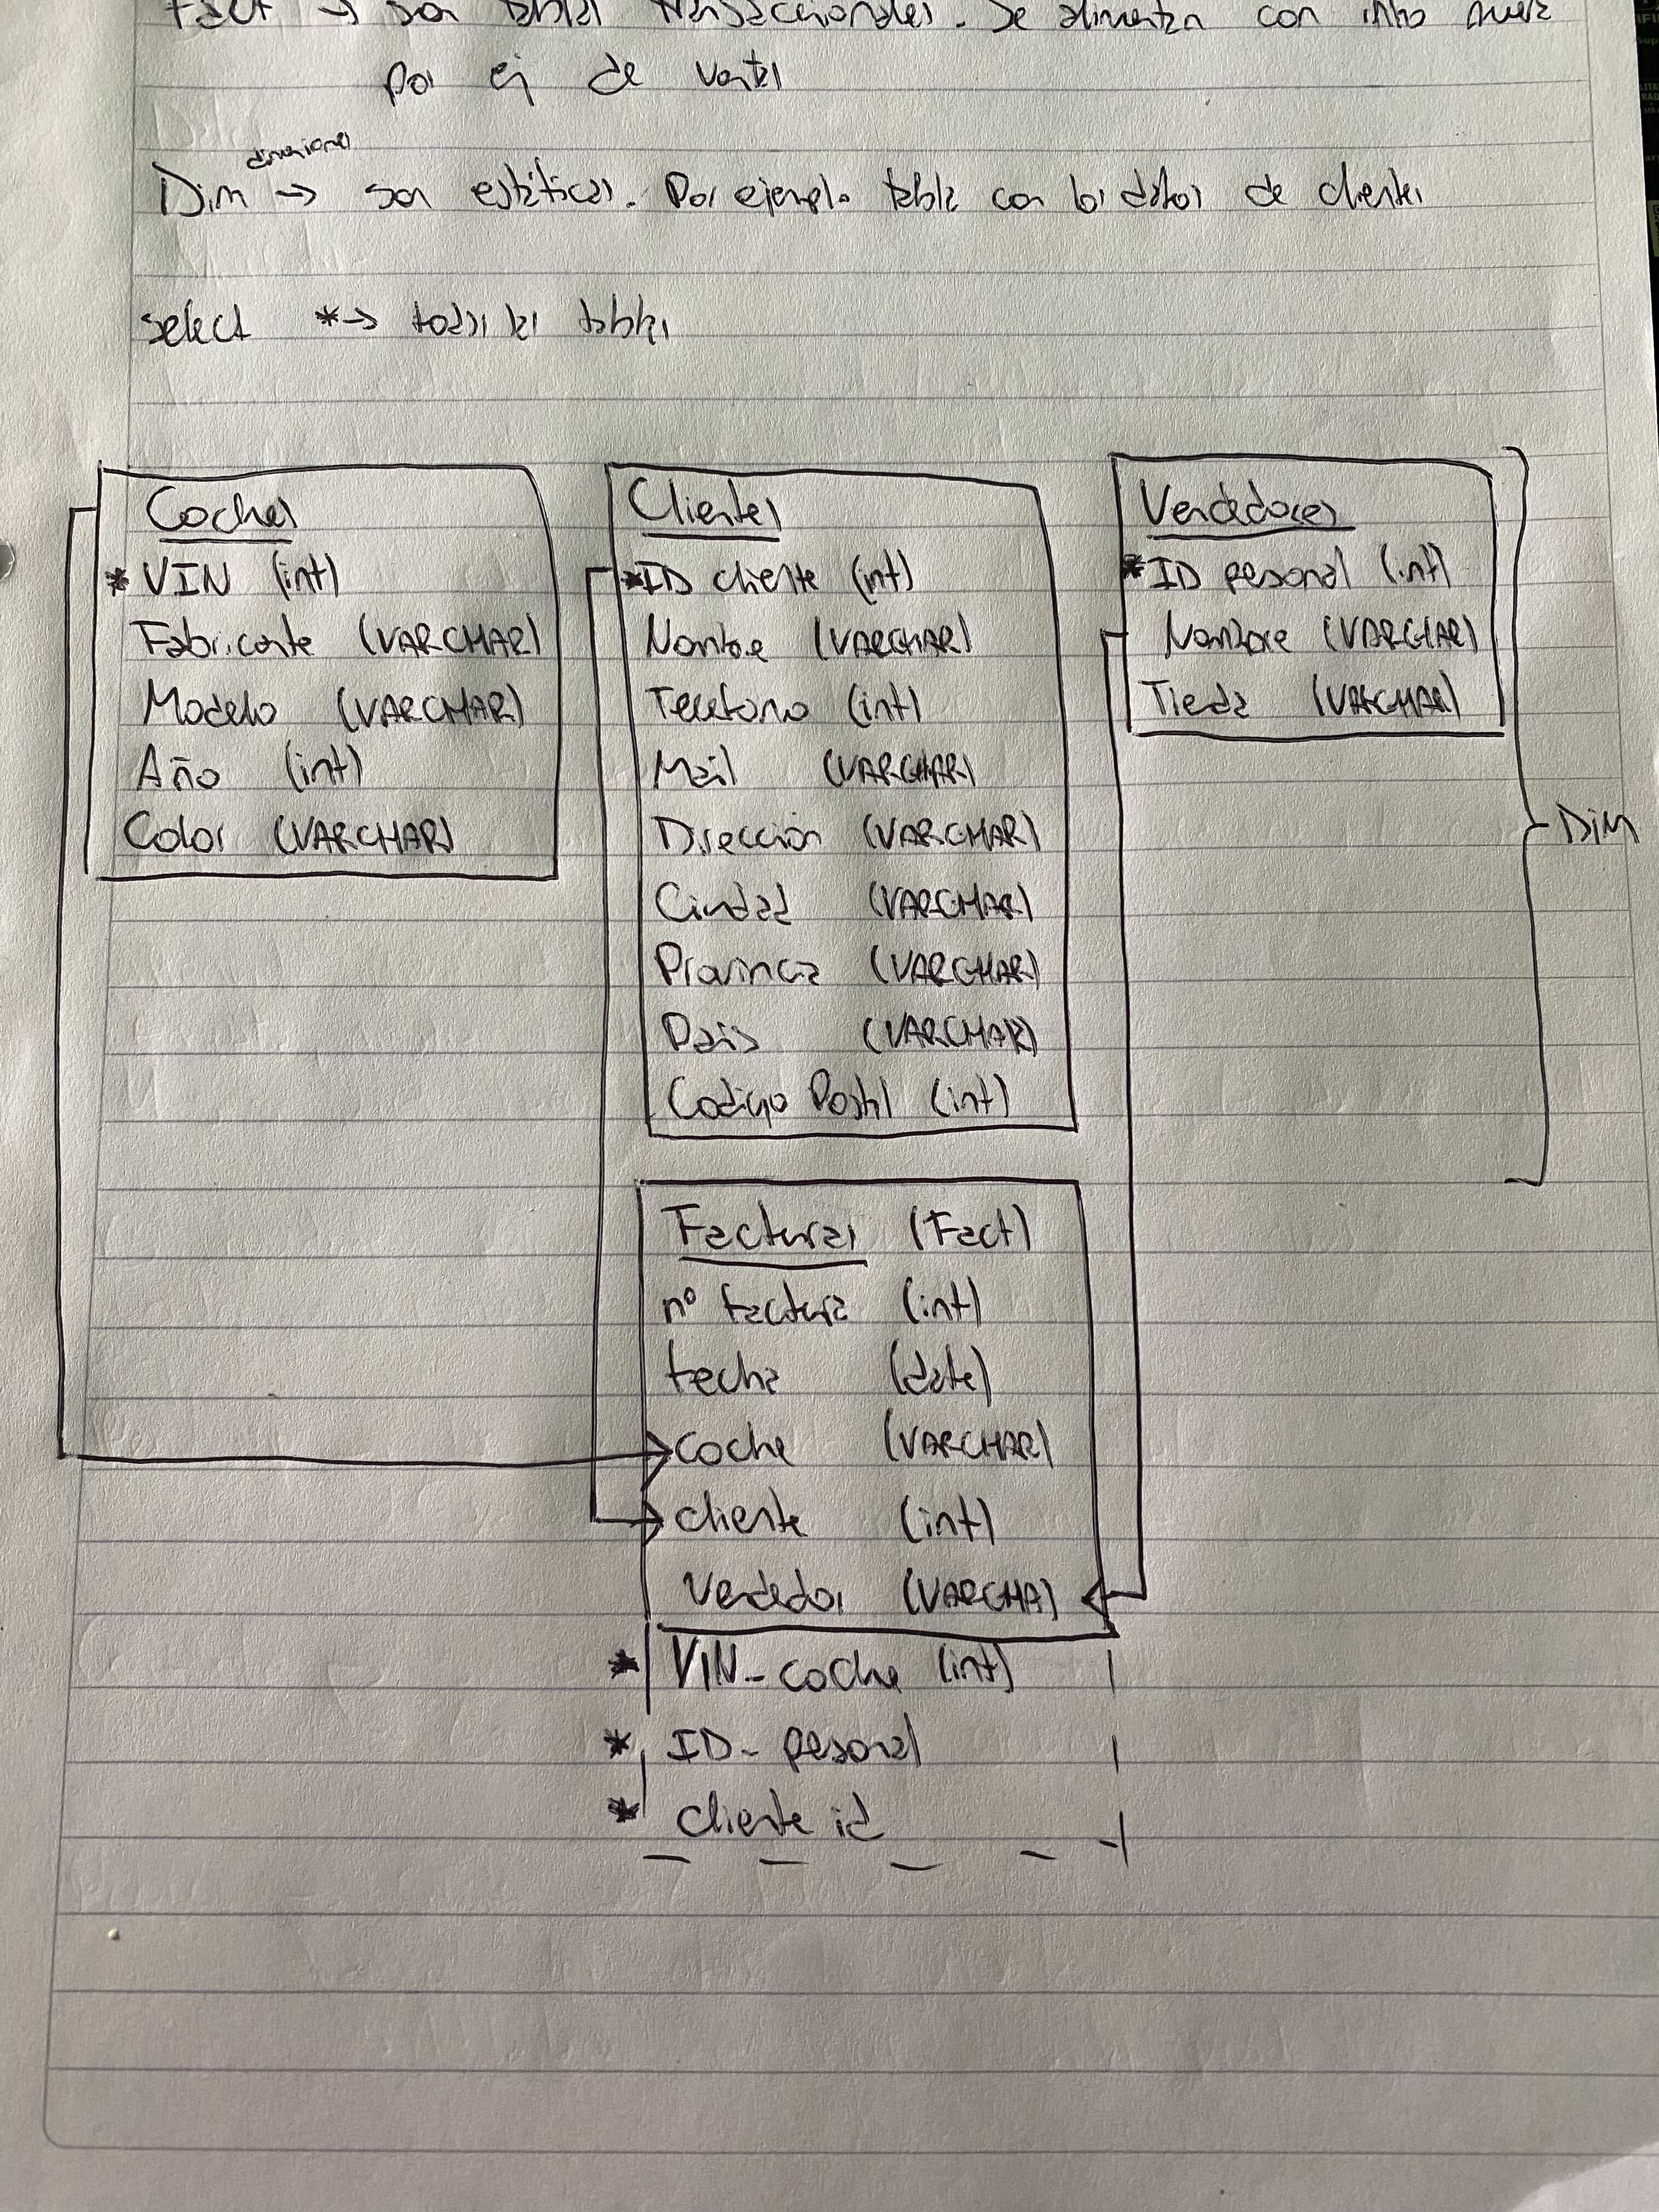 Fact → son tablas transaccionales. Se alimentan con info nueva
por ej de ventas
dimensiones
Dim → son estáticas. Por ejemplo tabla con los datos de clientes
select * → todas las tablas
Coches
* VIN (int)
Fabricante (VARCHAR)
Modelo (VARCHAR)
Año (int)
Color (VARCHAR)
Clientes
* ID cliente (int)
Nombre (VARCHAR)
Telefono (int)
Mail (VARCHAR)
Dirección (VARCHAR)
Ciudad (VARCHAR)
Provincia (VARCHAR)
Pais (VARCHAR)
Codigo Postal (int)
Vendedores
* ID personal (int)
Nombre (VARCHAR)
Tienda (VARCHAR)
DIM
Facturas (Fact)
nº factura (int)
fecha (date)
coche (VARCHAR)
cliente (int)
Vendedor (VARCHA)
* VIN_coche (int)
* ID_personal
* cliente id